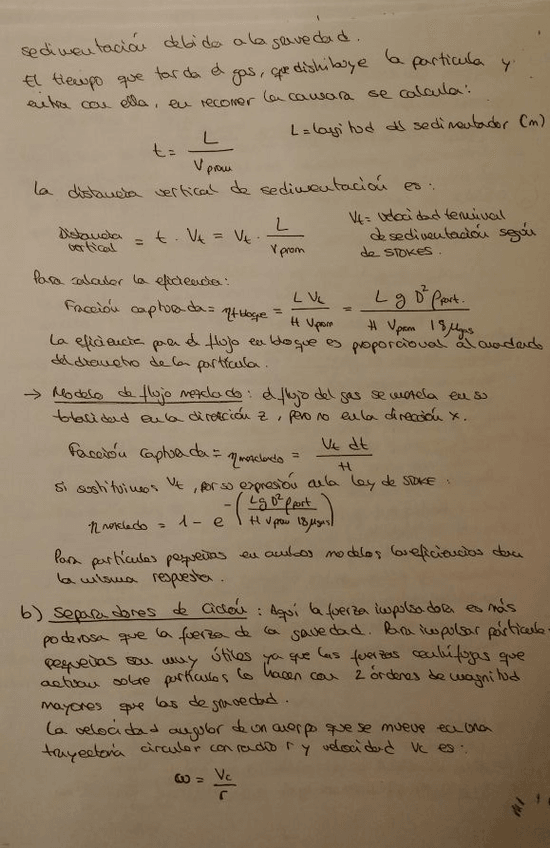 sedimentación debida a la gravedad.
El tiempo que tarda el gas, que distribuye la partícula y
entra con ella, en recorrer la cámara se calcula:
t = L / Vprom    L = longitud del sedimentador (m)
La distancia vertical de sedimentación es:
Distancia vertical = t · Vt = Vt · L / Vprom    Vt = velocidad terminal
de sedimentación según
de STOKES.
Para calcular la eficiencia:
Fracción capturada = ηtbloque = L Vt / H Vprom = L g D² ρpart. / H Vprom 18 μgas
La eficiencia para el flujo en bloque es proporcional al cuadrado
del diametro de la partícula.
→ Modelo de flujo mezclado: el flujo del gas se mezcla en su
totalidad en la dirección z, pero no en la dirección x.
Fracción capturada = ηmezclado = Vt dt / H
Si sustituimos Vt, por su expresión en la ley de STOKE:
ηmezclado = 1 - e^-(L g D² ρpart / H Vprom 18 μgas)
Para partículas pequeñas en ambos modelos las eficiencias dan
la misma respuesta.
b) Separadores de Ciclón: Aquí la fuerza impulsadora es más
poderosa que la fuerza de la gravedad. Para impulsar partículas
pequeñas son muy útiles ya que las fuerzas centífugas que
actúan sobre partículas lo hacen con 2 órdenes de magnitud
mayores que las de gravedad.
La velocidad angular de un cuerpo que se mueve en una
trayectoria circular con radio r y velocidad Vc es:
ω = Vc / r